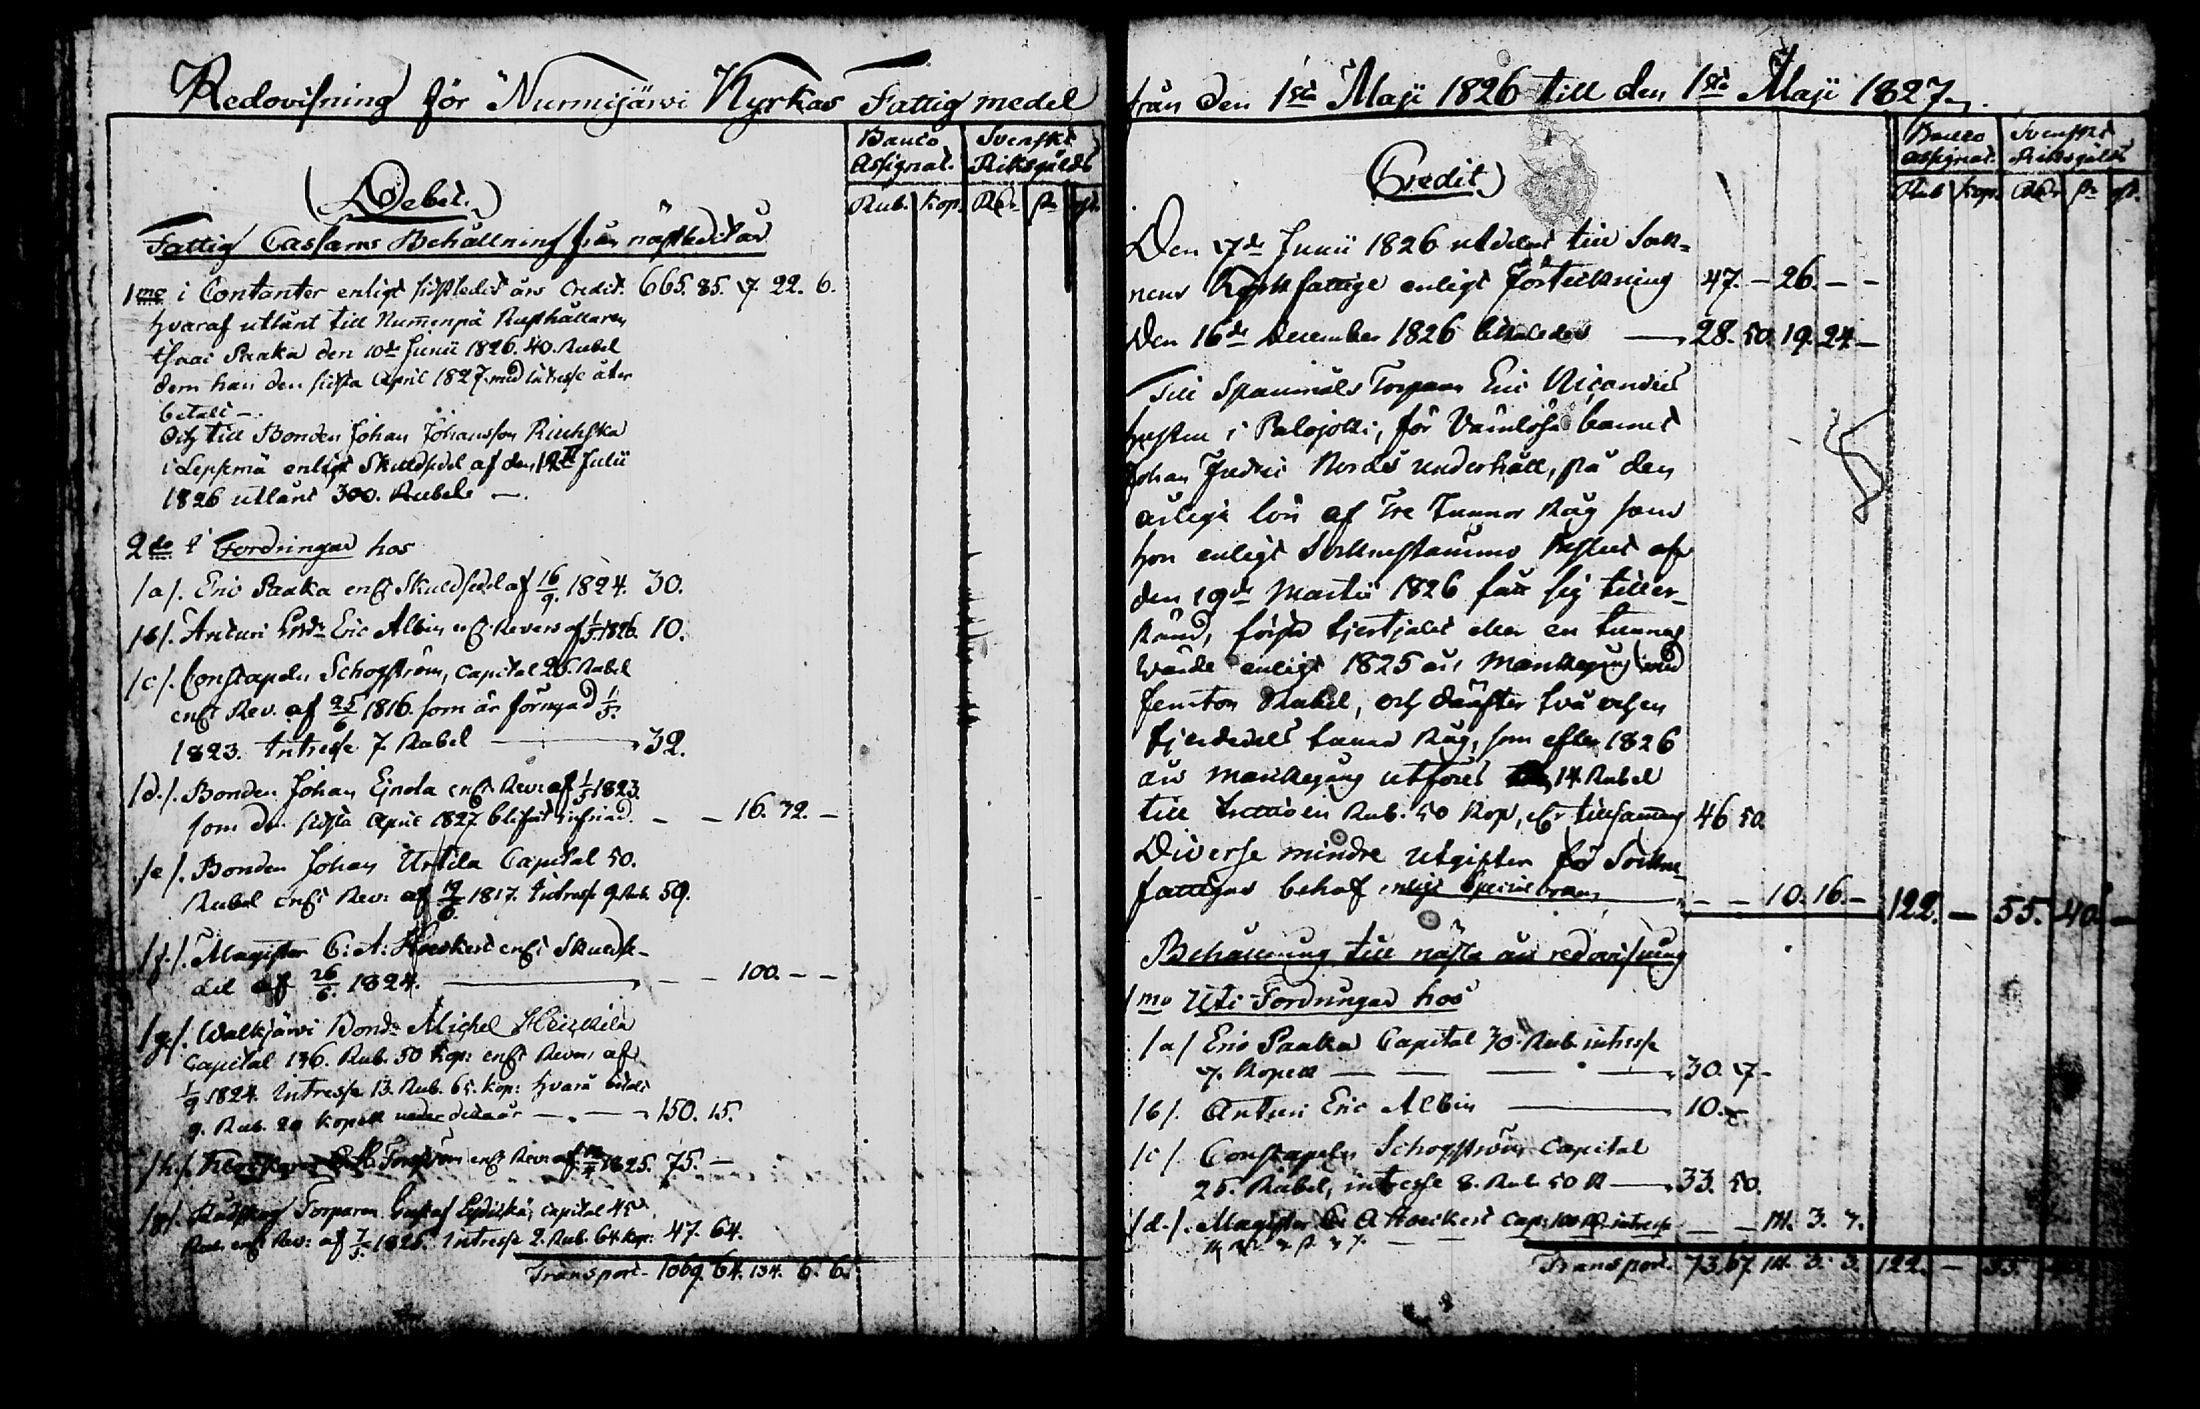 Redovisning för Nurmijärvi Kyrkas Fattig medel
Banco Assignat. Svenskt Riksgälds
Rub. Kop. Rdr sk rst.
Debet.
Fattig Cassans Behållning från nästledit år
1mo i Contanter enligt sidstledit års Credit. 665. 85. 7. 22. 6.
hvaraf utlånt till Numenpä Rusthållaren
Isaac Paaka den 10de Junii 1826. 40. Rubel
dem han den sidsta April 1827 med intresse åter
betalt —.
Och till Bonden Johan Johansson
i Leppemä enligt Skuldsedel af den Julii
1826 utlånt 300. Rubel —.
2do i Fordringar hos
/a/. Eric Paaka enlt Skuldsedel af 16/9. 1824. 30.
/b/. Anturi Eric Albin enlt Revers af 1/5 1826. 10.
/c/. Constapeln Schogström, Capital 25. Rubel
enlt Rev. af 25/6 1816. som är förnyad 1/5.
1823. Intresse 7. Rubel — 32.
/d./. Bonden Johan Ejnola enlt Rev: af 1/5 1823.
som den sidsta April 1827 blifvit infriad. — — 16. 32. —
/e/. Bonden Johan Urtila Capital 50.
Rubel enlt Rev: af 19/6 1817. Intresse 9. Rub. 59.
/f./. Magister C: A: Hoeckert enlt Skuldse-
del af 26/6. 1824. — — — 100. — —
/g/. Walkjärvi Bond: Michel Heikkilä
Capital 136. Rub. 50 Kop: enlt Revers af
1/9 1824. Intresse 13. Rub. 65. Kop: hvarå betalt
9. Rub. 20 Kopek under detta år — 150. 15.
/h./. Forsström enlt Rev: af 1825. 75. —
/g/. Torparen Gustaf capital 45
Rub. enlt Rev: af 7/5 1825. Intresse 2. Rub. 64. Kop: 47. 64.
Transport. 1069. 64. 134. 6. 6.
från den 1sta Maji 1826 till den 1sta Maji 1827.
Banco Assignat. Svenskt Riksgälds
Rub. Kop. Rdr sk rst.
Credit
Den 7de Junii 1826 utdelat till Sok-
nens fattige enligt förteckning 47. — 26. — —
Den 16de December 1826 — 28. 50. 19. 24. —
Till Torparen Eric Nicanders
hustru i Palojoki, för Värnlösa barnet
Johan Fredric Nords underhåll, på den
årliga lön af Tre Tunnor Råg som
hon enligt Sockenstämmo beslut af
den 19de Martii 1826 fått sig tiller-
känd, första fjertjalet eller en tunnas
värde enligt 1825 års Markegång med
femton Rubel, och därefter två och en
fjerdedels tunna Råg, som efter 1826
års markegång utföres 14 Rubel
till trettioen Rub. 50 Kop, är tillsamans 46 50.
Diverse mindre utgifter för Sockne-
fattigas behof enligt — — 10. 16. — 122. — 55. 40. —
Behållning till nästa års redovisning
1mo Uti Fordringar hos
/a/ Eric Paaka Capital 30. Rub. intresse
7. Kopek — — — 30. 7.
/b/. Anturi Eric Albin — 10.
/c/. Constapeln Schogström Capital
25. Rubel, intresse 8. Rub. 50 K — 33. 50.
/d./. Magister C: A Hoeckert Cap: 100 Rdr. intresse — — 114. 3. 3.
Transport. 73. 57. 114. 3. 3. 122. — 55. 40.